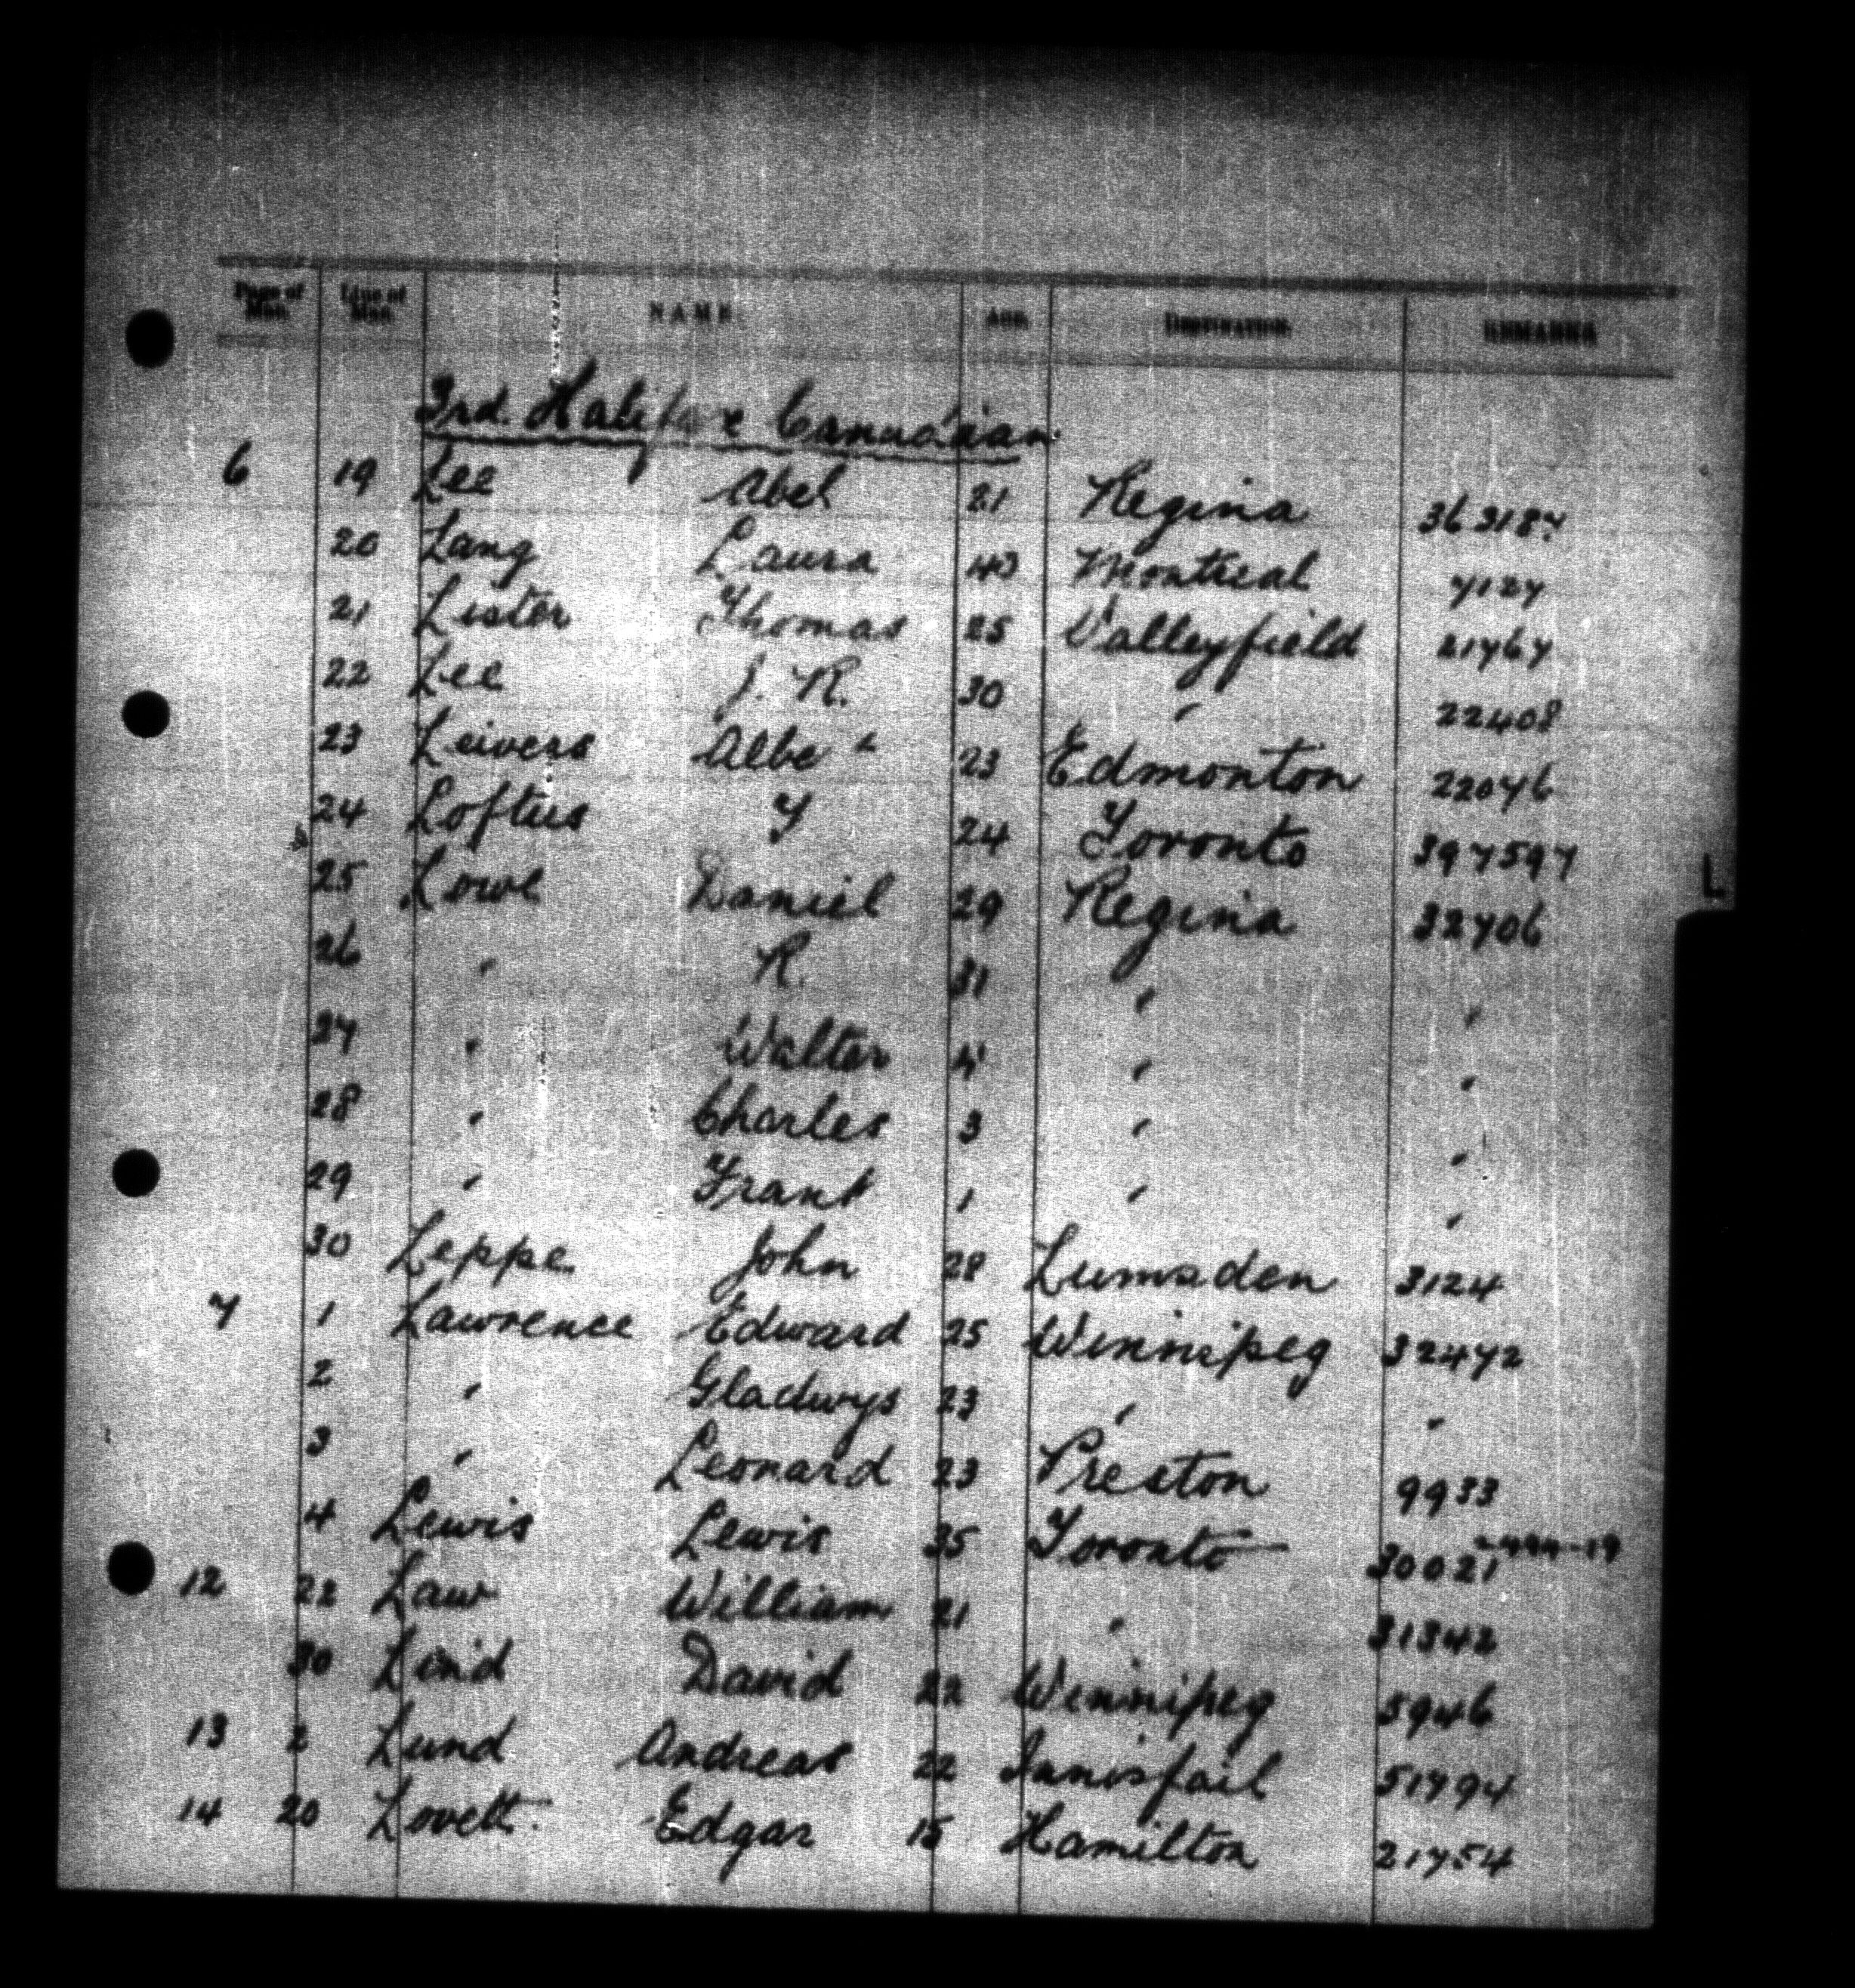 Page of Man. Line of Man. NAME AGE DESTINATION REMARKS
3rd. Halifax Canadian
6 19 Lee Abel 21 Regina 363187
20 Lang Laura 40 Montreal 7127
21 Lister Thomas 25 Valleyfield 21767
22 Lee J. R. 30 " 22408
23 Leivers Albe 23 Edmonton 22076
24 Loftus T 24 Toronto 397597
25 Lowe Daniel 29 Regina 32706
26 " R. 31 " "
27 " Walter 4 " "
28 " Charles 3 " "
29 " Frank 1 " "
30 Leppe John 28 Lumsden 3124
7 1 Lawrence Edward 25 Winnipeg 32472
2 " Gladwys 23 " "
3 " Leonard 23 Preston 9933
4 Lewis Lewis 35 Toronto 30021
12 22 Law William 21 " 31342
30 Lind David 22 Winnipeg 5946
13 2 Lund Andreas 22 Innisfail 51794
14 20 Lovett. Edgar 15 Hamilton 21754
L